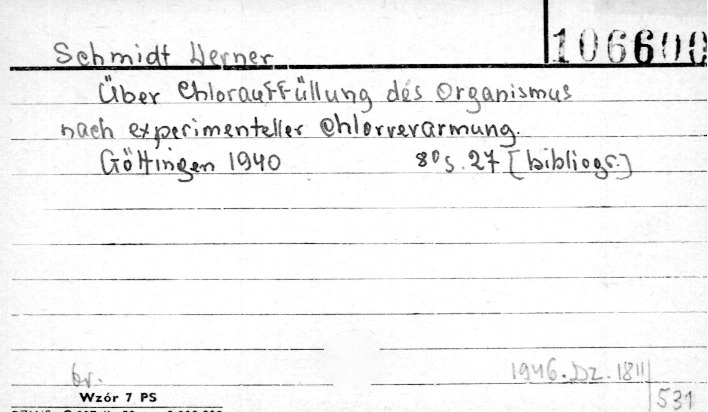 106600
Schmidt Werner
Über Chlorauffüllung des Organismus
nach experimenteller Chlorverarmung.
Göttingen 1940 8° s. 27 [bibliogr.]
br. 1946. Dz. 1811
Wzór 7 PS
531